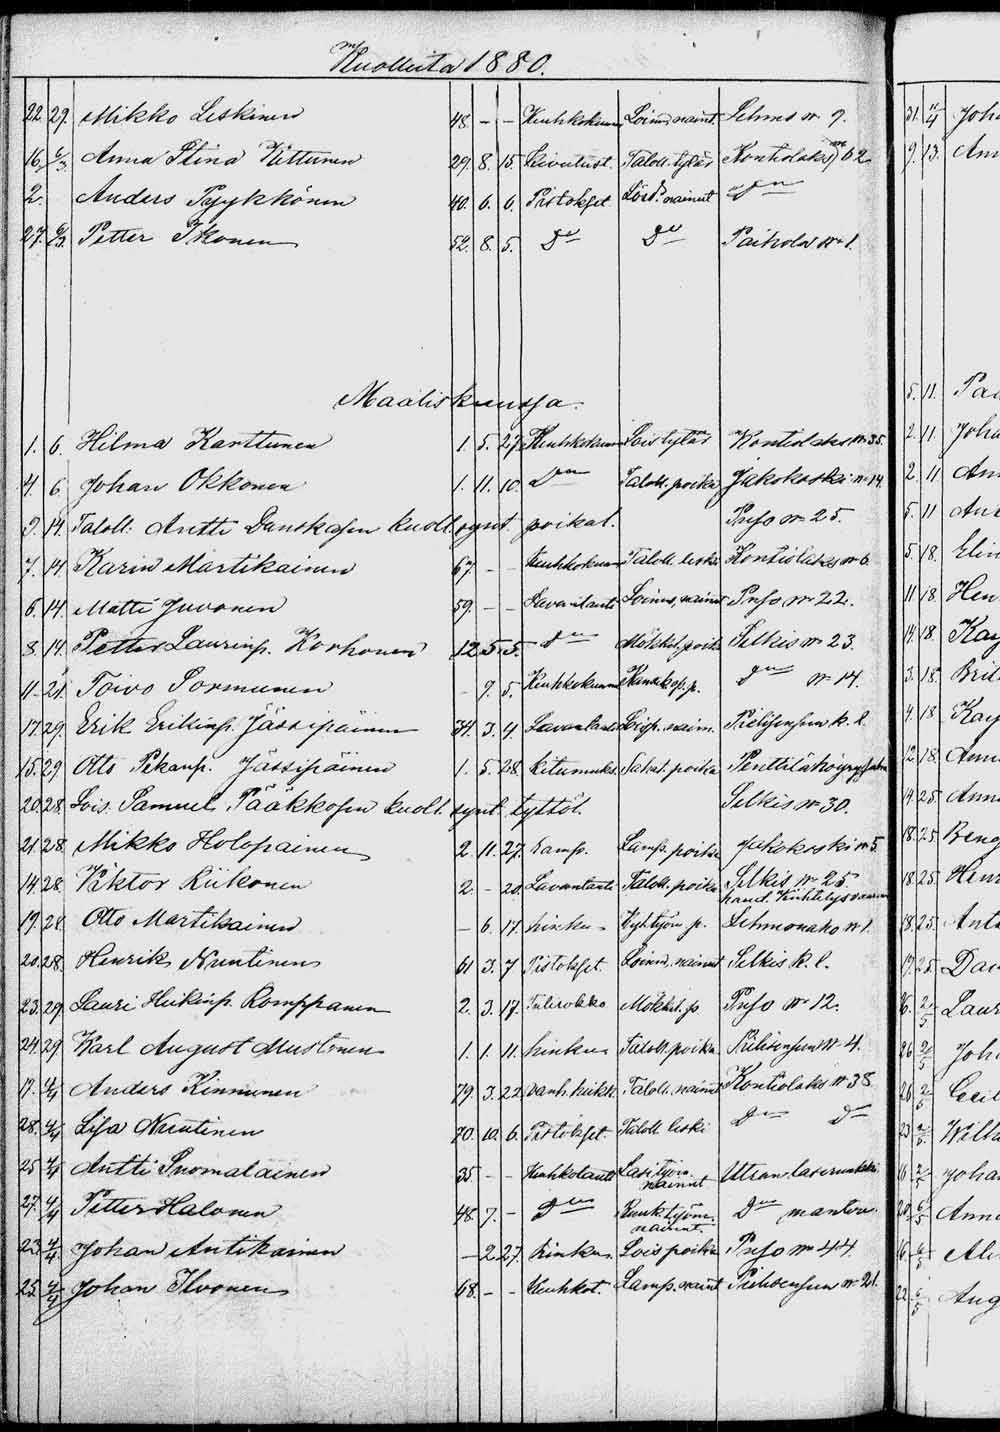 Kuolleita 1880.
22. 29. Mikko Leskinen 48. - - Keuhkokuum Loinen nainut. Lehmo № 9.
16. 6/3. Anna Stina Kettunen 29. 8. 15. Taloll. tytär Kontiolaks № 62
2. Anders Pyykkönen 40. 6. 6. Pistokset nainut D:o
27. 6/3. Petter Ikonen 52. 8. 5. D:o D:o Paihola № 1.
Maaliskuussa.
1. 6. Hilma Karttunen 1. 5. 27. Keuhkokuum Lois tytär Kontiolaks № 35.
4. 6. Johan Okkonen 1. 11. 10. D:o Taloll. poika Jakokoski № 14.
9. 14. Taloll. Antti Danskasen kuoll. synt. poikal. Puso № 25.
7. 14. Karin Martikainen 67 - - Keuhkokuum Taloll. leski Kontiolaks № 6.
6. 14. Matti Juvonen 59. - - Lavantauti Loinen, nainut Puso № 22.
8. 14. Petter Laurinp. Korhonen 12 5. 5. D:o Mökkil. poika Selkis № 23.
11. 21. Toivo Sormunen - 9. 5. Keuhkokuume D:o № 14.
17. 29. Erik Erikinp. Jässipäinen 34. 3. 4. Lavantauti Loisp. nainu. Pielisensuu k. l.
15. 29 Otto Pekanp. Jässipäinen 1. 5. 28. kitumuks. poika
20. 28. Lois. Samuel Pääkkösen kuoll. synt. tyttöl. Selkis № 30.
21. 28. Mikko Holopainen 2. 11. 27. Lamp. poika Jakokoski № 5.
14. 28. Viktor Riikonen 2. - 20. Lavantauti Taloll. poika Selkis № 25.
haud.
19. 28. Otto Martikainen - 6. 17. hinku p. Lehmonaho № 1.
20. 28. Henrik Nuutinen 61 3. 7 Pistokset. Loinen, nainut Selkis k. l.
23. 29. Lauri Heikinp. Romppanen 2. 3. 17. Tulirokko Mökkil. p. Puso № 12.
24. 29. Karl August Mustonen 1. 1. 11. hinku Taloll. poika. Pielisensuu № 4.
17. 4/4 Anders Kinnunen 79. 3. 22 vanh. heikk. Taloll. nainut Kontiolaks № 38
28. 4/4 Lisa Nuutinen 70. 10. 6. Pistokset. Taloll. leski D:o D:o
25 4/4 Antti Suomalainen 35. - - Keuhkotauti Lasi työm. nainut Utran lasiruukki
27. 4/4 Petter Halonen 48. 7. - D:o Ruuk. työm. nainut. D:o mantu.
23. 4/4. Johan Antikainen - 2 27. hinku. Lois poika Puso № 44.
25. 4/4 Johan Ilvonen 68. - - Keuhkot. Lamp. nainut Pielisensuu № 21.
31. 11/4 Joh
9. 13. Ann
5. 11.
2. 11. Joha
2. 11. Ann
5. 11
5. 18. Elin
11. 18. Hen
14. 18. Kay
3. 18. Brit
4. 18 Kay
12. 18. Anna
14. 25. Anna
18. 25 Beng
18. 25. Henr
18. 25. Ant
17. 25. Dav
16. 2/5 Laur
26 2/5 Joh
26. 2/5 Cecil
23. 2/5 Wilh
16. 2/5 Johan
20. 6/5 Anna
16. 6/5
22. 6/5 Aug